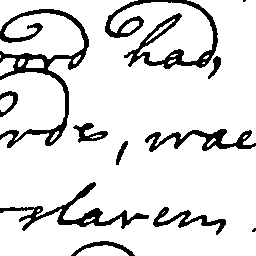 oord had,
rde, wae
slaven